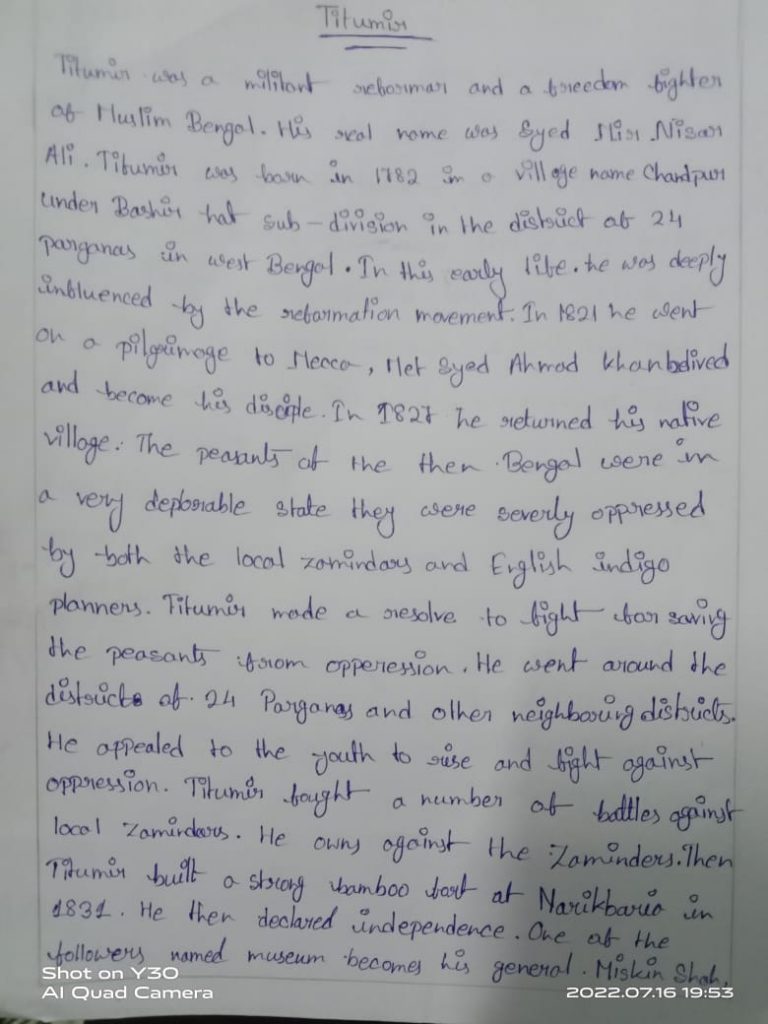 Titumir
Titumir was a militant reformar and a freedom fighter
of Muslim Bengal. His real name was Syed Mir Nisar
Ali. Titumir was born in 1782 in a village name Chandpur
under Bashir hat sub-division in the district of 24
parganas in west Bengal. In this early life. he was deeply
influenced by the reformation movement. In 1821 he went
on a pilgrimage to Mecca, Met Syed Ahmad khan
and become his disciple. In 1827 he returned his native
village. The peasants of the then Bengal were in
a very deplorable state they were severly oppressed
by both the local zamindars and English indigo
planners. Titumir made a resolve to fight for saving
the peasants from opperession. He went around the
districts of 24 Parganas and other neighbouring districts.
He appealed to the youth to rise and fight against
oppression. Titumir fought a number of battles against
local zamindars. He owns against the Zaminders. Then
Titumir built a strong bamboo fort at Narikbaria in
1831. He then declared independence. One of the
followers named museum becomes his general. Miskin Shah,
Shot on Y30
AI Quad Camera
2022.07.16 19:53